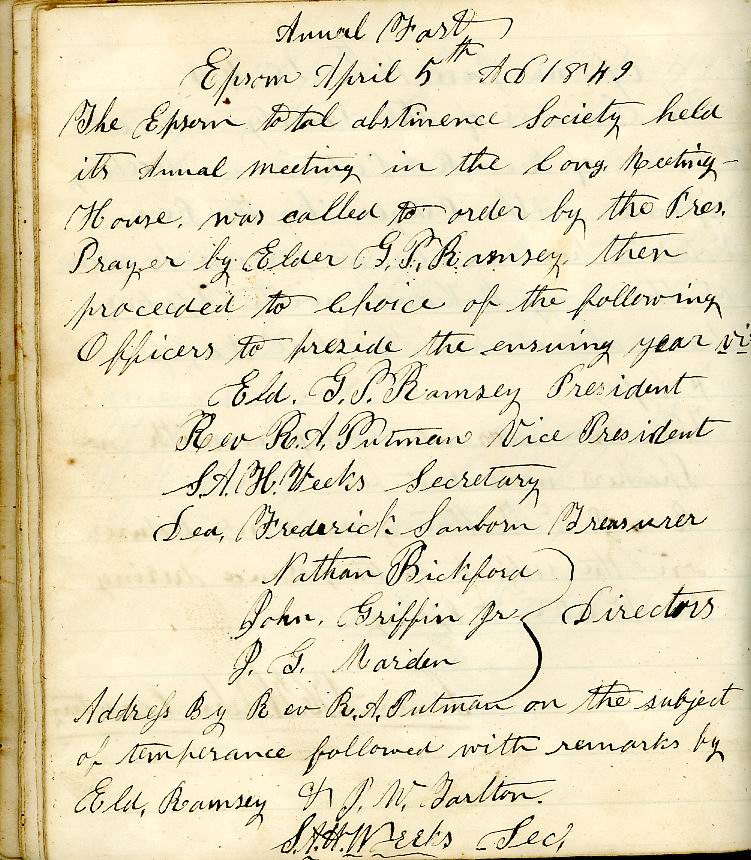 Annual Fast
Epsom April 5th AD 1849
The Epsom total abstinence Society held
its Annual meeting in the Cong. Meeting-
House. was called to order by the Pres.
Prayer by Elder G.P. Ramsey. then
proceeded to choice of the following
Officers to preside the ensuing year vi
Eld. G.P. Ramsey President
Rev R.A. Putman Vice President
S.A.H. Weeks Secretary
Dea, Frederick Sanborn Treasurer
Nathan Bickford
John. Griffin Jr Directors
J. G. Marden
Address By Rev R.A. Putman on the subject
of temperance followed with remarks by
Eld, Ramsey & J. W. Tarlton.
S.A.H. Weeks Sec,